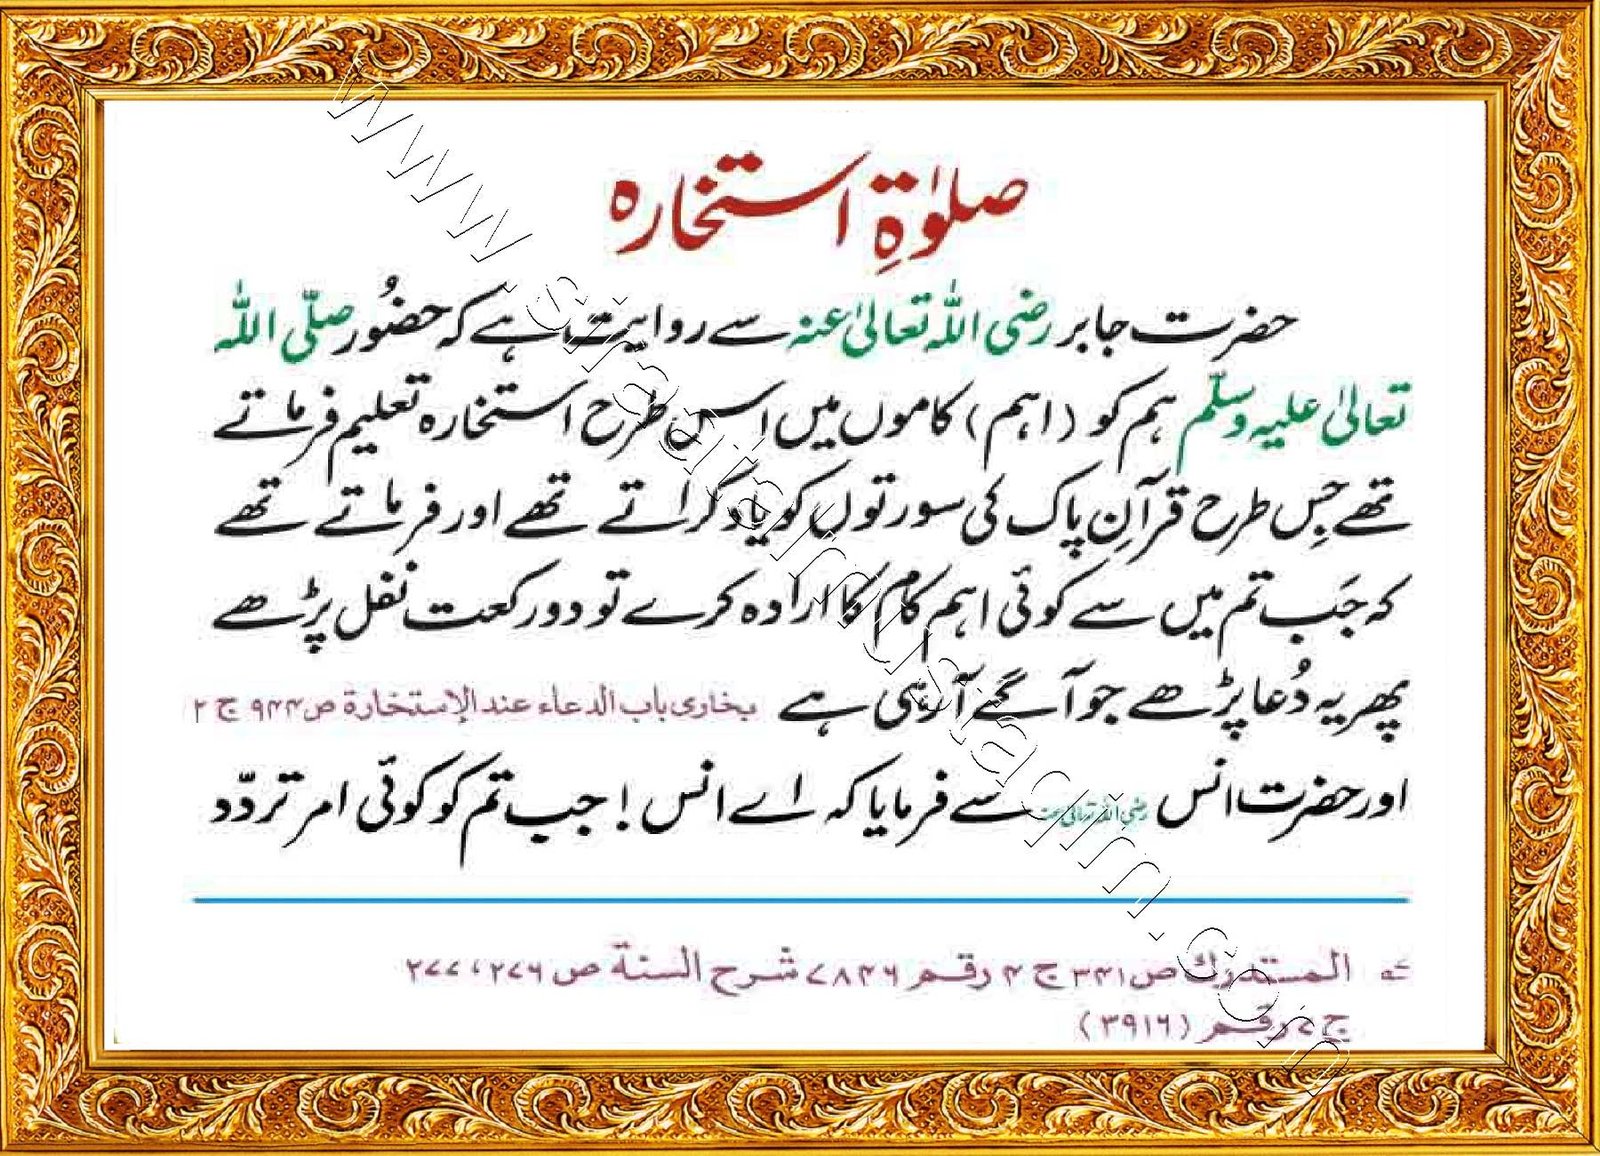 صلوٰۃِ استخارہ
حضرت جابر رضی اللہ تعالیٰ عنہ سے روایت ہے کہ حضُور صلّی اللہ
تعالیٰ علیہ وسلّم ہم کو (اہم) کاموں میں اس طرح استخارہ تعلیم فرماتے
تھے جِس طرح قرآنِ پاک کی سورتوں کو یاد کراتے تھے اور فرماتے تھے
کہ جَب تم میں سے کوئی اہم کام کا ارادہ کرے تو دو رکعت نفل پڑھے
پھر یہ دُعا پڑھے جو آگے آرہی ہے بخاری باب الدعاء عند الإستخارة ص ۹۴۴ ج ۲
اور حضرت انس رضی اللہ تعالیٰ عنہ سے فرمایا کہ اے انس ! جب تم کو کوئی امر تردّد
المستدرك ص ۳۴۱ ج ۴ رقم ۷۸۴۶ شرح السنة ص ۲۷۶، ۲۷۷
ج ۷ رقم (۳۹۱۶)
www.siratulmustaqim.com